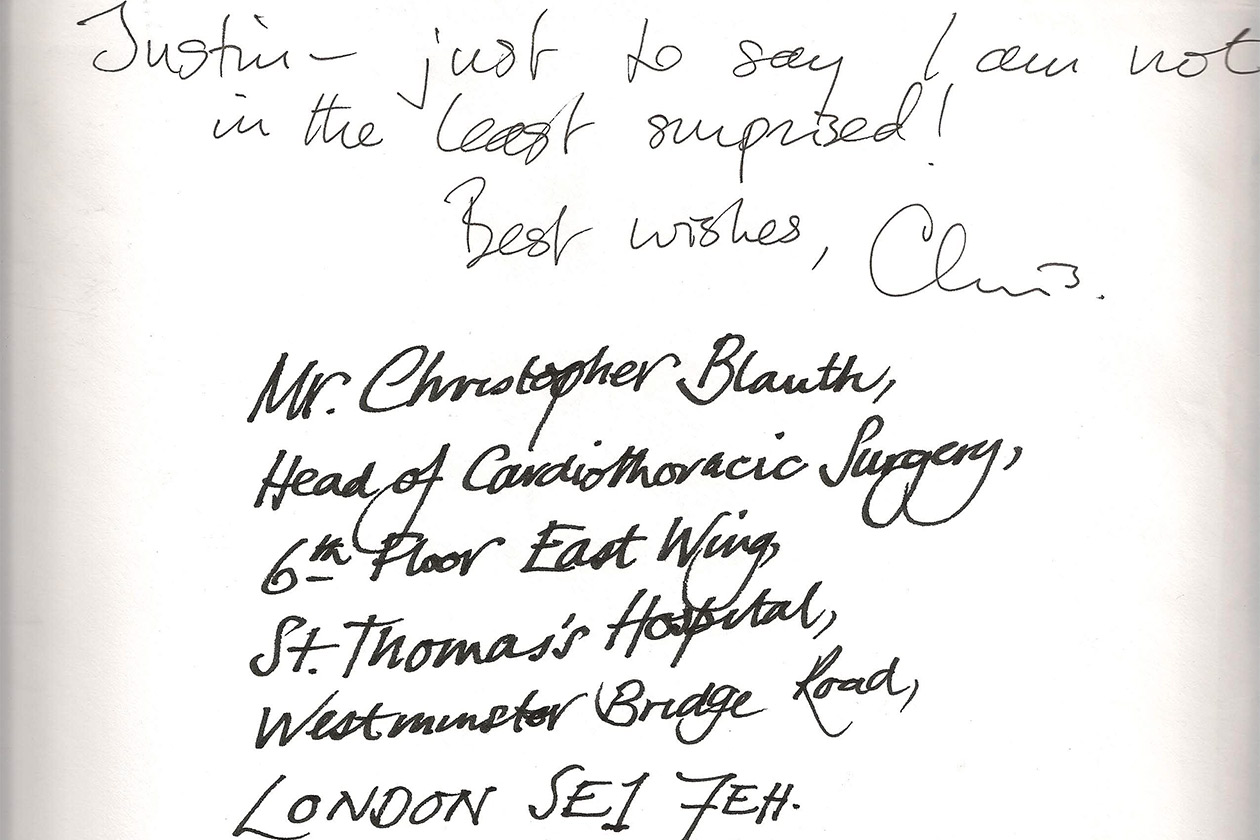 Justin – just to say I am not
in the least surprised!
Best wishes, Chris.
Mr. Christopher Blauth,
Head of Cardiothoracic Surgery,
6th Floor East Wing,
St. Thomas's Hospital,
Westminster Bridge Road,
LONDON SE1 7EH.